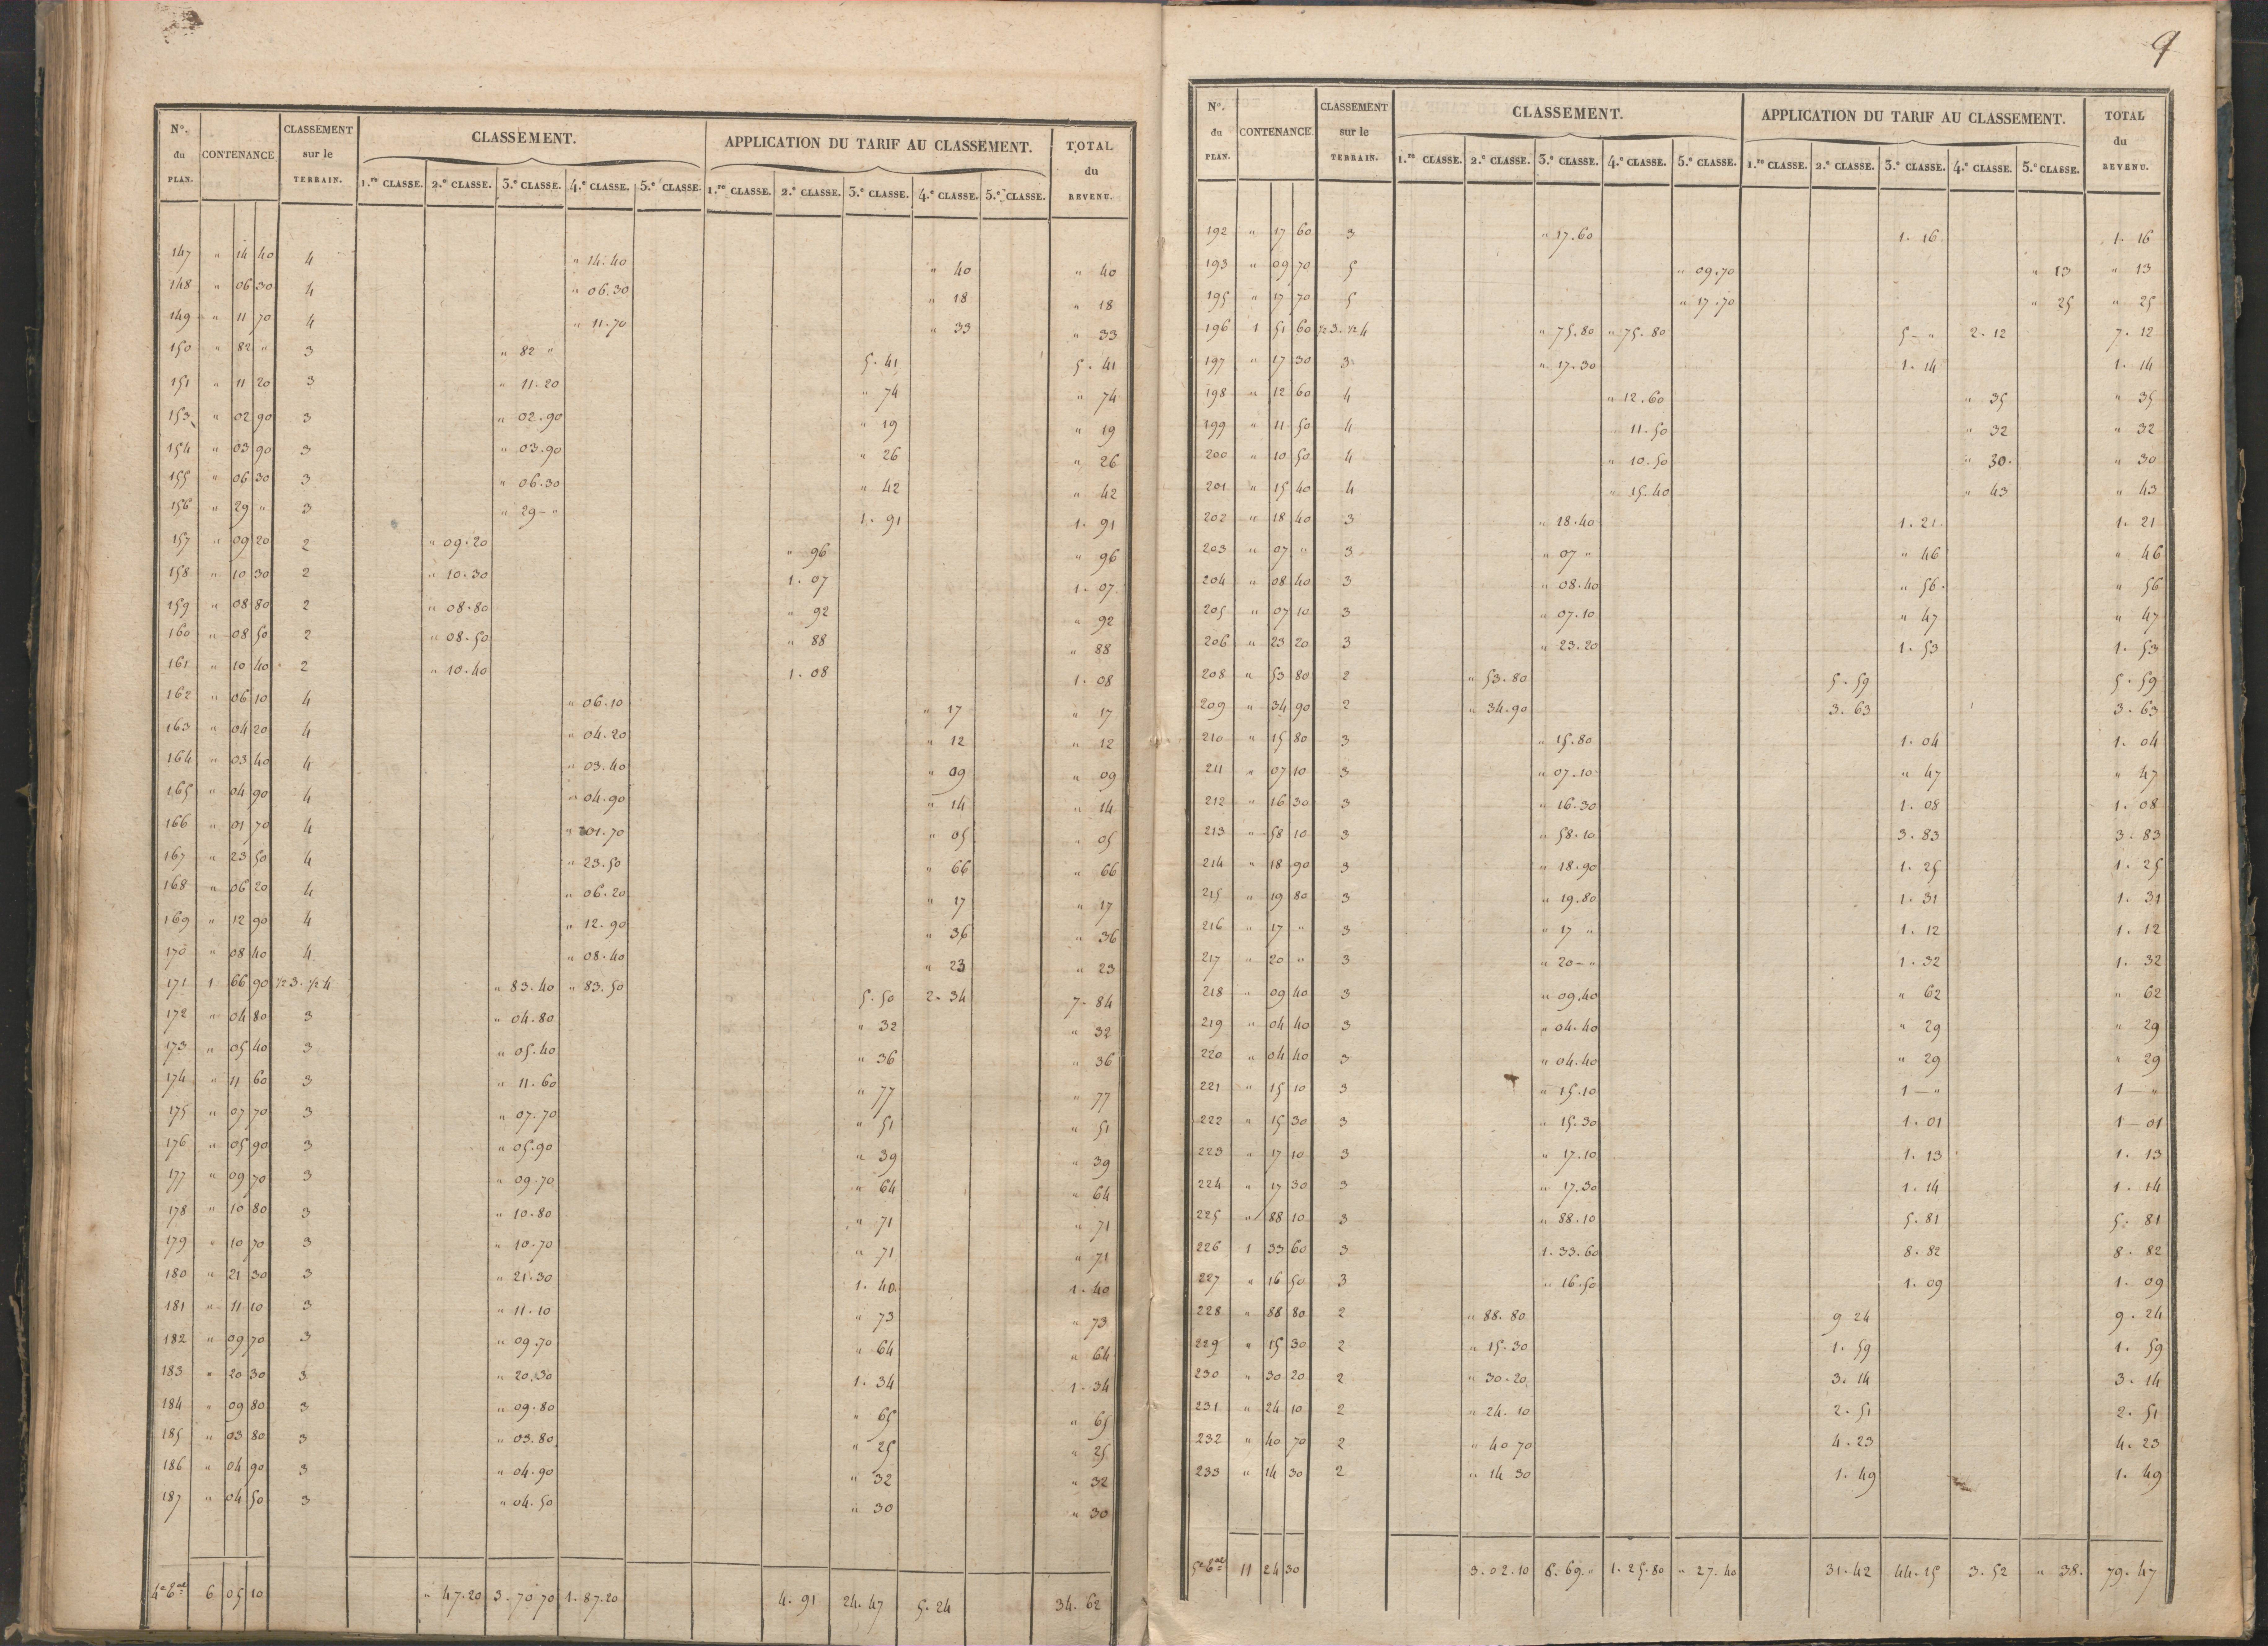 N.º du PLAN. CONTENANCE CLASSEMENT sur le TERRAIN. CLASSEMENT. APPLICATION DU TARIF AU CLASSEMENT. TOTAL du REVENU.
1.re CLASSE. 2.e CLASSE. 3.e CLASSE. 4.e CLASSE. 5.e CLASSE. 1.re CLASSE. 2.e CLASSE. 3.e CLASSE. 4.e CLASSE. 5.e CLASSE.
147 " 14 40 4 " 14.40 " 40 " 40
148 " 06 30 4 " 06.30 " 18 " 18
149 " 11 70 4 " 11.70 " 33 " 33
150 " 82 " 3 " 82 " 5.41 5.41
151 " 11 20 3 " 11.20 " 74 " 74
153 " 02 90 3 " 02.90 " 19 " 19
154 " 03 90 3 " 03.90 " 26 " 26
155 " 06 30 3 " 06.30 " 42 " 42
156 " 29 " 3 " 29 – " 1.91 1.91
157 " 09 20 2 " 09.20 " 96 " 96
158 " 10 30 2 " 10.30 1.07 1.07
159 " 08 80 2 " 08.80 " 92 " 92
160 " 08 50 2 " 08.50 " 88 " 88
161 " 10 40 2 " 10.40 1.08 1.08
162 " 06 10 4 " 06.10 " 17 " 17
163 " 04 20 4 " 04.20 " 12 " 12
164 " 03 40 4 " 03.40 " 09 " 09
165 " 04 90 4 " 04.90 " 14 " 14
166 " 01 70 4 " 01.70 " 05 " 05
167 " 23 50 4 " 23.50 " 66 " 66
168 " 06 20 4 " 06.20 " 17 " 17
169 " 12 90 4 " 12.90 " 36 " 36
170 " 08 40 4 " 08.40 " 23 " 23
171 1 66 90 1/2 3. 1/2 4 " 83.40 " 83.50 5.50 2.34 7.84
172 " 04 80 3 " 04.80 " 32 " 32
173 " 05 40 3 " 05.40 " 36 " 36
174 " 11 60 3 " 11.60 " 77 " 77
175 " 07 70 3 " 07.70 " 51 " 51
176 " 05 90 3 " 05.90 " 39 " 39
177 " 09 70 3 " 09.70 " 64 " 64
178 " 10 80 3 " 10.80 " 71 " 71
179 " 10 70 3 " 10.70 " 71 " 71
180 " 21 30 3 " 21.30 1.40 1.40
181 " 11 10 3 " 11.10 " 73 " 73
182 " 09 70 3 " 09.70 " 64 " 64
183 " 20 30 3 " 20.30 1.34 1.34
184 " 09 80 3 " 09.80 " 65 " 65
185 " 03 80 3 " 03.80 " 25 " 25
186 " 04 90 3 " 04.90 " 32 " 32
187 " 04 50 3 " 04.50 " 30 " 30
6 05 10 " 47.20 3.70 70 1.87.20 4.91 24.47 5.24 34.62
9
N.º du PLAN. CONTENANCE. CLASSEMENT sur le TERRAIN. CLASSEMENT. APPLICATION DU TARIF AU CLASSEMENT. TOTAL du REVENU.
1.re CLASSE. 2.e CLASSE. 3.e CLASSE. 4.e CLASSE. 5.e CLASSE. 1.re CLASSE. 2.e CLASSE. 3.e CLASSE. 4.e CLASSE. 5.e CLASSE.
192 " 17 60 3 " 17.60 1.16 1.16
193 " 09 70 5 " 09.70 " 13 " 13
195 " 17 70 5 " 17.70 " 25 " 25
196 1 51 60 1/2 3. 1/2 4 " 75.80 " 75.80 5 – " 2.12 7.12
197 " 17 30 3 " 17.30 1.14 1.14
198 " 12 60 4 " 12.60 " 35 " 35
199 " 11 50 4 11.50 " 32 " 32
200 " 10 50 4 " 10.50 " 30. " 30
201 " 15 40 4 " 15.40 " 43 " 43
202 " 18 40 3 " 18.40 1.21. 1.21
203 " 07 " 3 " 07 " " 46 " 46
204 " 08 40 3 " 08.40 " 56. " 56
205 " 07 10 3 " 07.10 " 47 " 47
206 " 23 20 3 " 23.20 1.53 1.53
208 " 53 80 2 " 53.80 5.59 5.59
209 " 34 90 2 " 34.90 3.63 3.63
210 " 15 80 3 " 15.80 1.04 1.04
211 " 07 10 3 " 07.10 " 47 " 47
212 " 16 30 3 " 16.30 1.08 1.08
213 " 58 10 3 " 58.10 3.83 3.83
214 " 18 90 3 " 18.90 1.25 1.25
215 " 19 80 3 " 19.80 1.31 1.31
216 " 17 " 3 " 17 " 1.12 1.12
217 " 20 " 3 " 20 – " 1.32 1.32
218 " 09 40 3 " 09.40 " 62 " 62
219 " 04 40 3 " 04.40 " 29 " 29
220 " 04 40 3 " 04.40 " 29 " 29
221 " 15 10 3 " 15.10 1 – " 1 – "
222 " 15 30 3 " 15.30 1.01 1 – 01
223 " 17 10 3 " 17.10 1.13 1.13
224 " 17 30 3 " 17.30 1.14 1.14
225 " 88 10 3 " 88.10 5.81 5.81
226 1 33 60 3 1.33.60 8.82 8.82
227 " 16 50 3 " 16.50 1.09 1.09
228 " 88 80 2 " 88.80 9 24 9.24
229 " 15 30 2 " 15.30 1.59 1.59
230 " 30 20 2 " 30.20 3.14 3.14
231 " 24 10 2 " 24.10 2.51 2.51
232 " 40 70 2 " 40 70 4.23 4.23
233 " 14 30 2 " 14 30 1.49 1.49
11 24 30 3.02.10 6.69." 1.25.80 " 27.40 31.42 44.15 3.52 " 38. 79.47